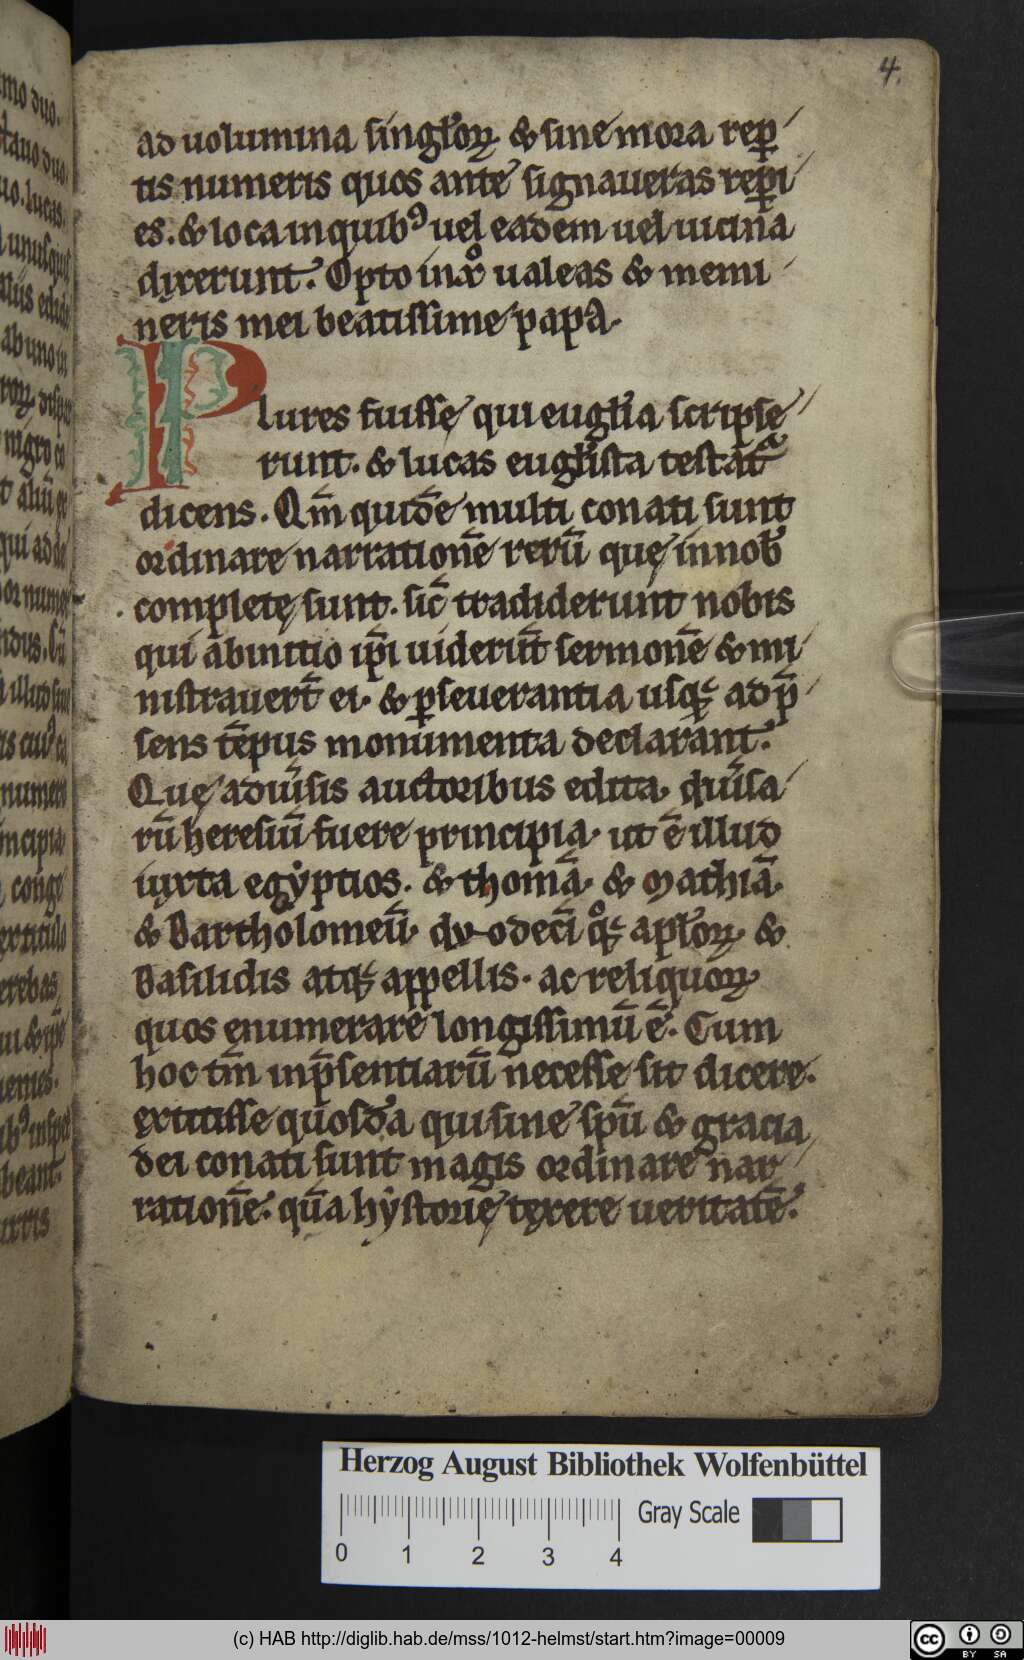 4.
ad uolumina singłoꝝ & sine mora rep̲
tis numeris quos ante signaueras rep̲i
es. & loca in quibꝰ uel eadem uel uicina
dixerunt. Opto in xͦ ualeas & memi
neris mei beatissime papa.
Plures fuisse qui eugl̄ia scripse
runt. & lucas eugl̄ista testat᷑
dicens. Qm̄ quidē multi conati sunt
ordinare narrationē rerū que̜ in nob̄
complete̜ sunt. sic̄ tradiderunt nobis
qui ab initio ip̄i uiderūt sermonē & mi
nistrauert̄ ei. & ꝑseuerantia usqꝫ ad p̄
sens tēpus monumenta declarant.
Que̜ adiu̾sis auctoribus edita. diu̾sa
rū heresiū fuere principia. ut ē illud
iuxta egẏptios. & thomā. & Mathiā.
& Bartholomeū. duodeci̅ qͦqꝫ apl̄oꝝ. &
Basilidis atqꝫ appellis. ac reliquoꝝ
quos enumerare longissimū ē. Cum
hoc tm̄ inp̄sentiarū necesse sit dicere.
extitisse quosdā qui sine sp̄u & gracia
dei conati sunt magis ordinare nar
rationē. quā hẏstorie̜ texere ueritatē.
Herzog August Bibliothek Wolfenbüttel
Gray Scale
0 1 2 3 4
(c) HAB http://diglib.hab.de/mss/1012-helmst/start.htm?image=00009
cc BY SA